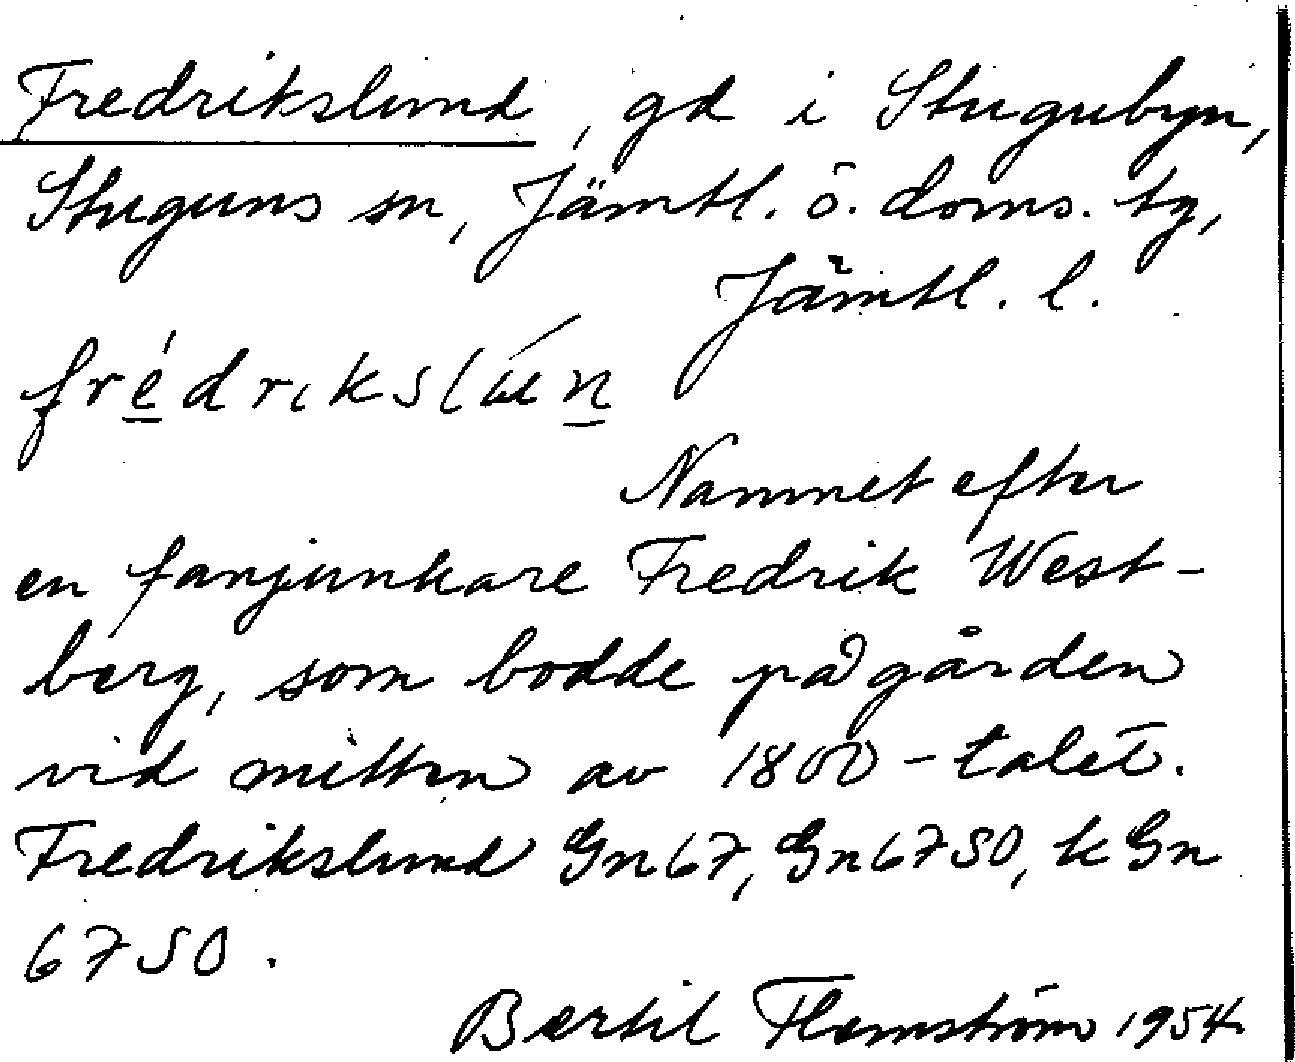 Fredrikslund, gd i Stugubyn,
Stuguns sn, Jämtl. ö. doms. tg,
Jämtl. l.
Namnet efter
en fanjunkare Fredrik West-
berg, som bodde på gården
vid mitten av 1800-talet.
Fredrikslund Gn 67, Gn 67 SO, k Gn
67 SO.
Bertil Flemström 1954